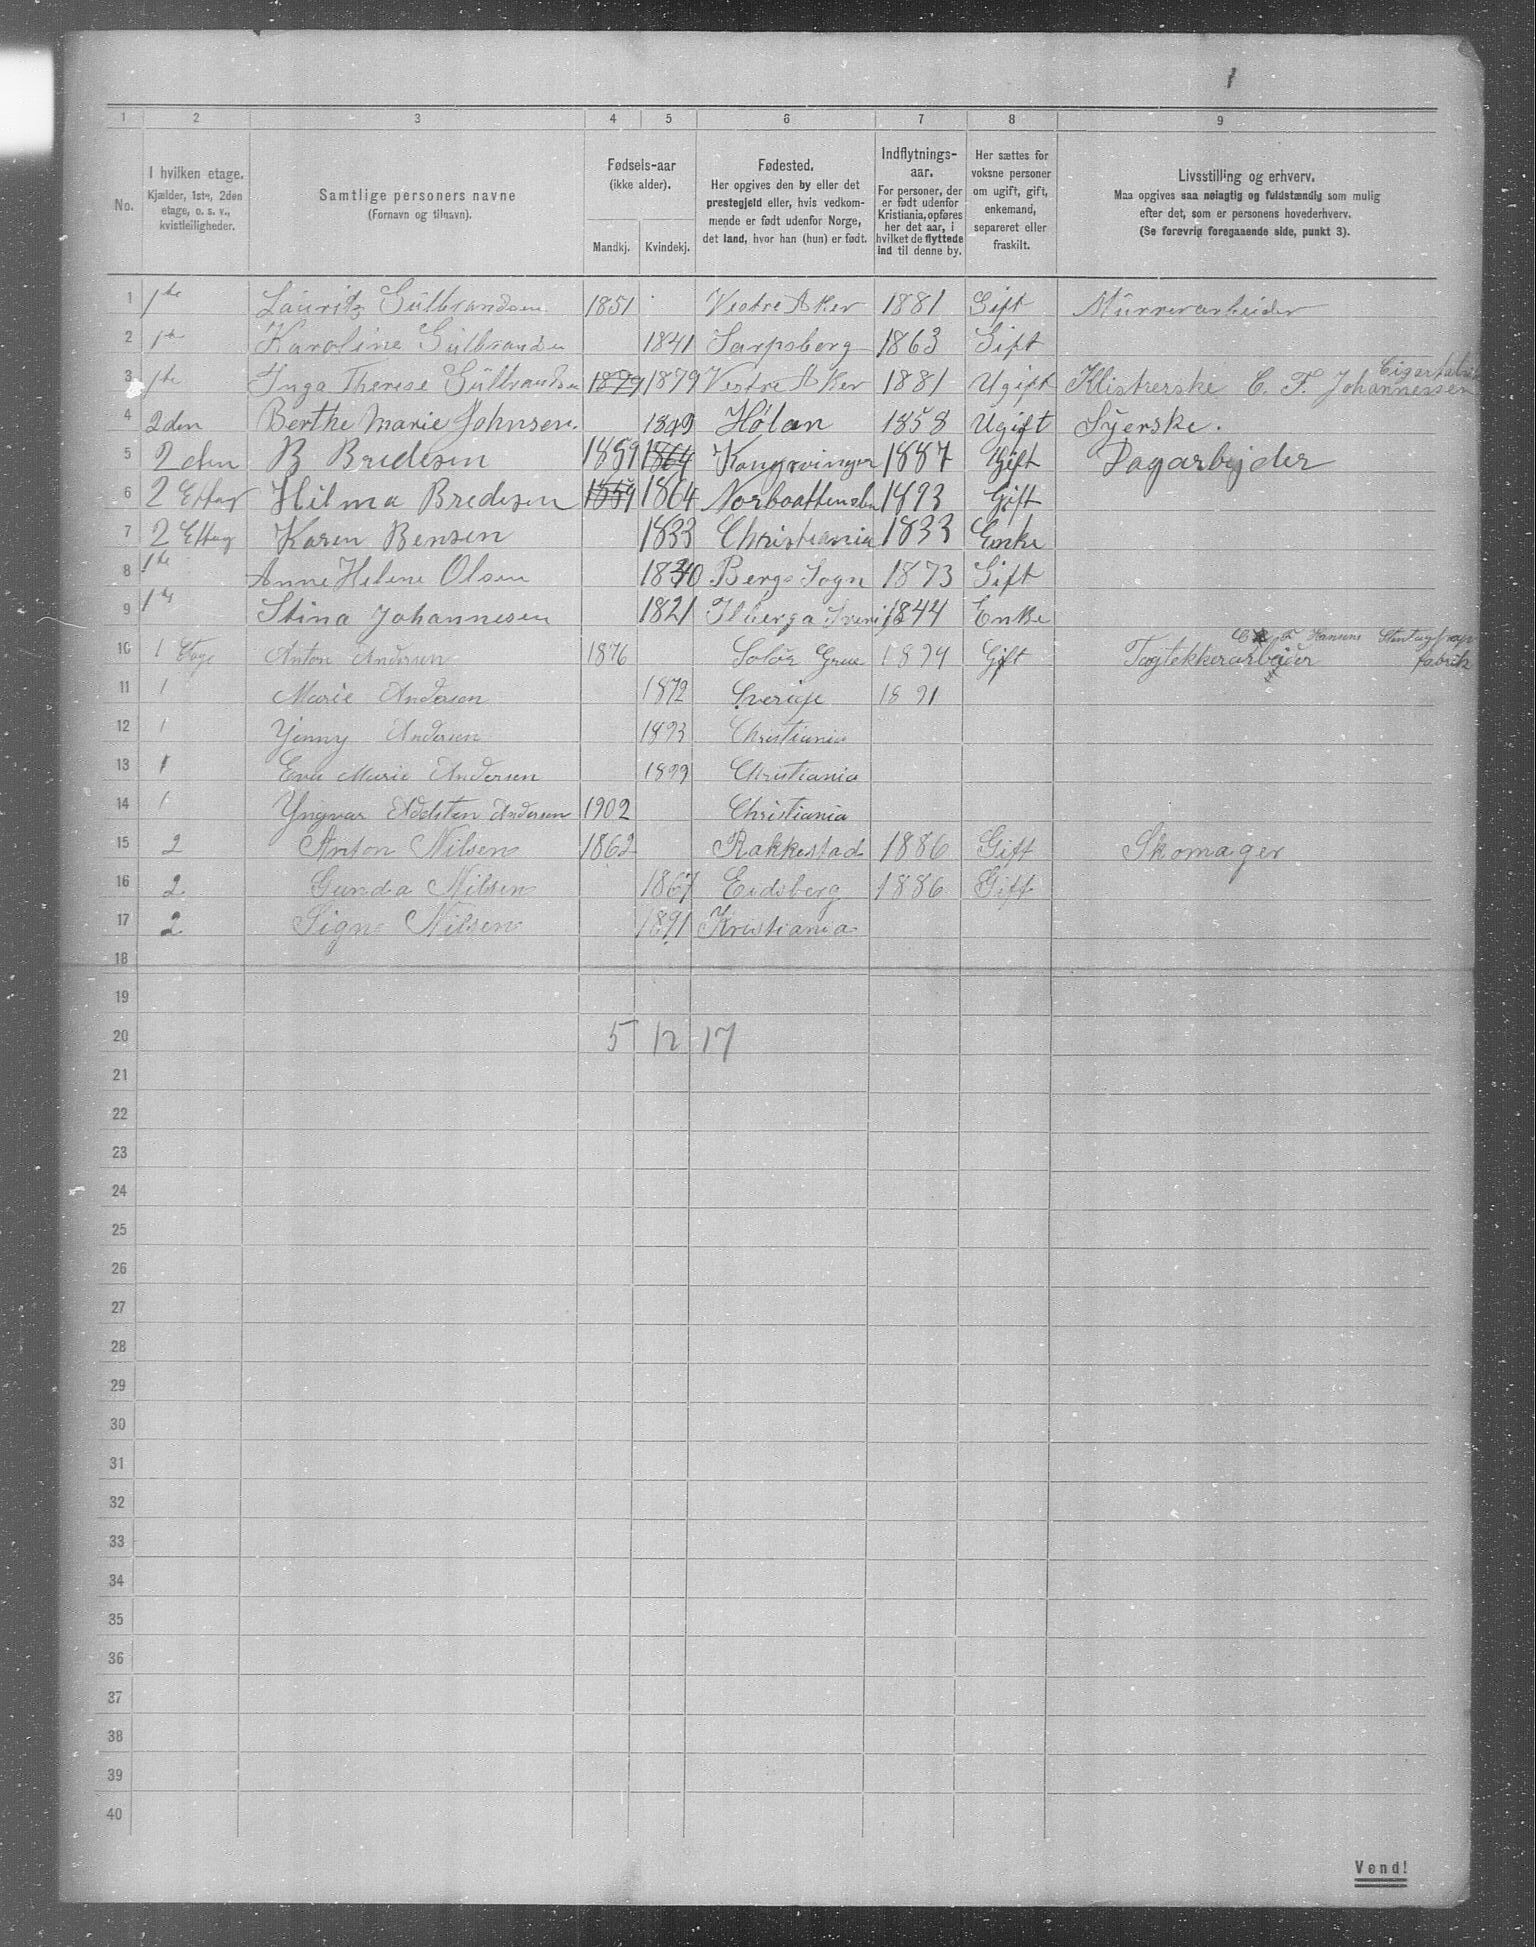 1
1 2 3 4 5 6 7 8 9
No.
I hvilken etage.
Kjælder, 1ste, 2den
etage, o. s. v.,
kvistleiligheder.
Samtlige personers navne
(Fornavn og tilnavn).
Fødsels-aar
(ikke alder).
Mandkj. Kvindekj.
Fødested.
Her opgives den by eller det
prestegjeld eller, hvis vedkom-
mende er født udenfor Norge,
det land, hvor han (hun) er født.
Indflytnings-
aar.
For personer, der
er født udenfor
Kristiania, opføres
her det aar, i
hvilket de flyttede
ind til denne by.
Her sættes for
voksne personer
om ugift, gift,
enkemand,
separeret eller
fraskilt.
Livsstilling og erhverv.
Maa opgives saa nøiagtig og fuldstændig som mulig
efter det, som er personens hovederhverv.
(Se forøvrig foregaaende side, punkt 3).
1 1ste Lauritz Gülbrandsen 1851 Vestre Aker 1881 Gift Mürrerarbeider
2 1ste Karoline Gülbrandsen 1841 Sarpsborg 1863 Gift
3 1ste Inga Therese Gülbrandsen 1879 1879 Vestre Aker 1881 Ugift Klistrerske C. F. Johannessen
4 2den Berthe Marie Johnsen. 1849 Hølan 1858 Ugift Syerske.
5 2 den B Bredesen 1859 1864 Kongsvinger 1887 Gift Dagarbejder
6 2 Ettag Hilma Bredesen 1859 1864 1893 Gift
7 2 Ettag Karen Bensen 1833 Christiania 1833 Enke
8 1ste Anne Helene Olsen 1840 Bergs Sogn 1873 Gift
9 1ste Stina Johannesen 1821 1844 Enke
10 1 Etage Anton Andersen 1876 Solør Grue 1894 Gift Tagtekkerarbeider C F Hansens fabrik
11 1 Marie Andersen 1872 Sverige 1891
12 1 Yenny Andersen 1893 Christiania
13 1 Eva Marie Andersen 1899 Christiania
14 1 Yngvar Adelsten Andersen 1902 Christiania
15 2 Anton Nilsen 1862 Rakkestad 1886 Gift Skomager
16 2 Gunda Nilsen 1867 Eidsberg 1886 Gift
17 2 Signe Nilsen 1891 Kristiania
18
19
20 5 12 17
21
22
23
24
25
26
27
28
29
30
31
32
33
34
35
36
37
38
39
40
Vend!